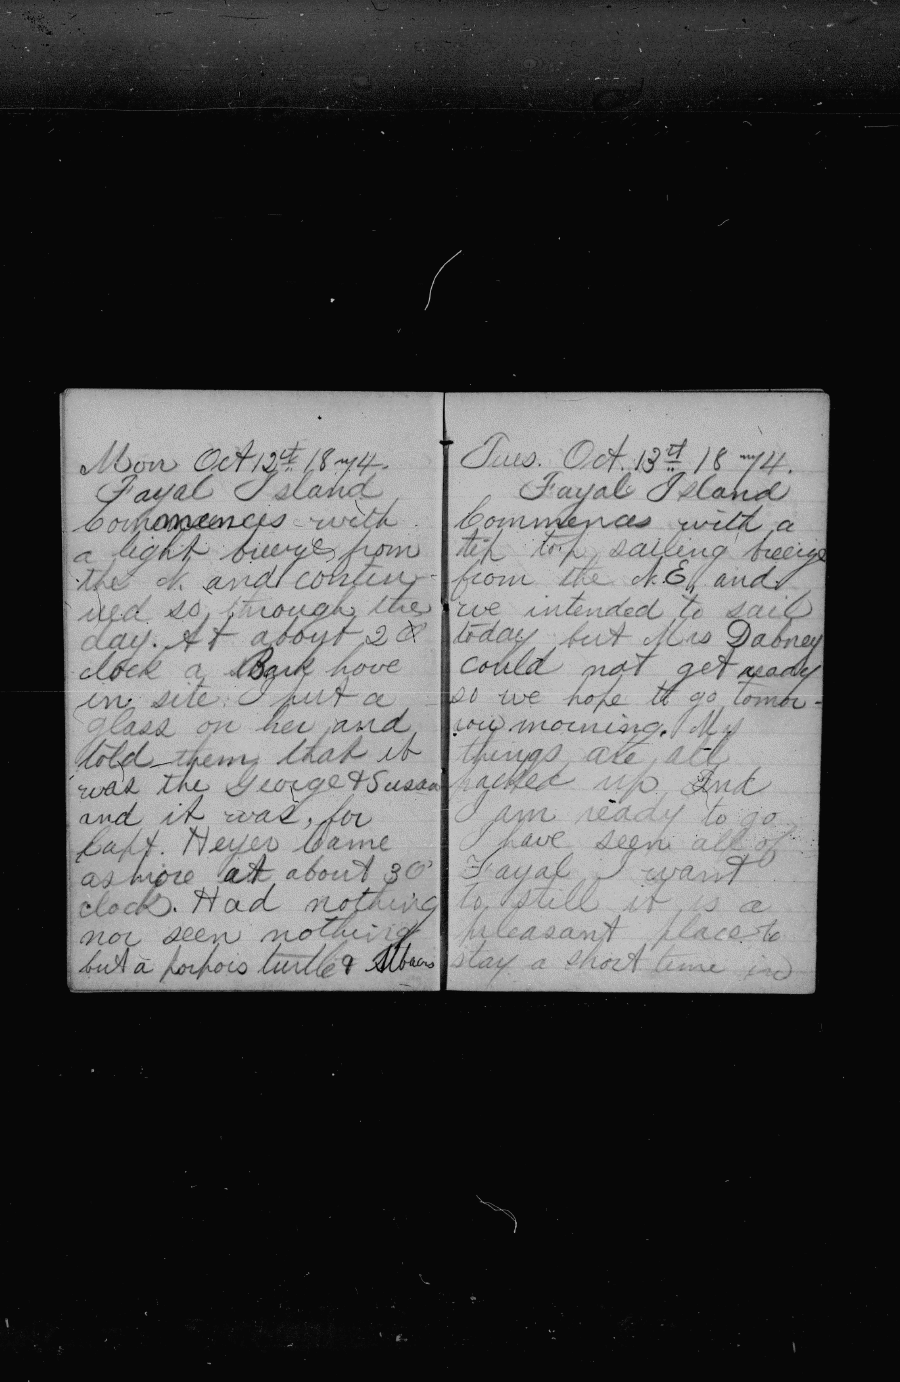 Mon Oct 12th 1874.
Fayal Island
Commences with
a light breeze from
the N. and contin-
ued so through the
day. At about 2 O
clock a Bark hove
in site I put a
glass on her and
told them that it
was the George & Susan
and it was, for
Capt. Heyer Came
ashore at about 3 O'
clock. Had nothing
nor seen nothing
but a porpois turtle &
Tues. Oct. 13th 1874.
Fayal Island
Commences with a
tip top sailing breeze
from the N.E, and
we intended to sail
today but Mrs Dabney
could not get ready
so we hope to go tomor-
row morning. My
things are all
packed up And
I am ready to go
I have seen all of
Fayal I want
to still it is a
pleasant place to
stay a short time in